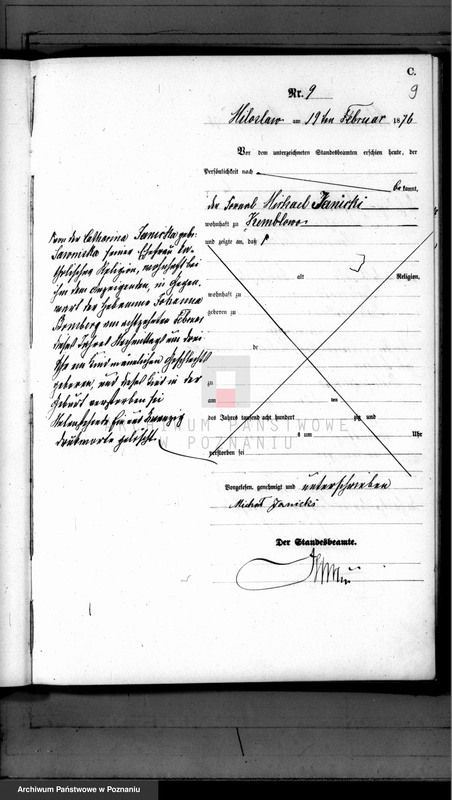 C.
Nr. 9
9
Miloslaw am 19ten Februar 1876
Vor dem unterzeichneten Standesbeamten erschien heute, der
Persönlichkeit nach
bekannt,
der Michael Janicki
wohnhaft zu
und zeigte an, daß
von der Catharina Janicka geb.
seiner Ehefrau
Religion, wohnhaft bei
ihm dem Anzeigenden, in Gegen
wart der Hebamme Johanna
Bromberg am achtzehnten Februar
dieses Jahres Nachmittags um drei
Uhr ein Kind männlichen Geschlechts
geboren, und dieses Kind in der
Geburt verstorben sei
Vorstehende zwanzig
Druckworte gelöscht.
alt
Religion,
wohnhaft zu
geboren zu
de
zu
am ten
des Jahres tausend acht hundert zig und
s um Uhr
verstorben sei
Vorgelesen, genehmigt und unterschrieben
Michał Janicki
Der Standesbeamte.
ARCHIWUM PAŃSTWOWE
W POZNANIU
Archiwum Państwowe w Poznaniu